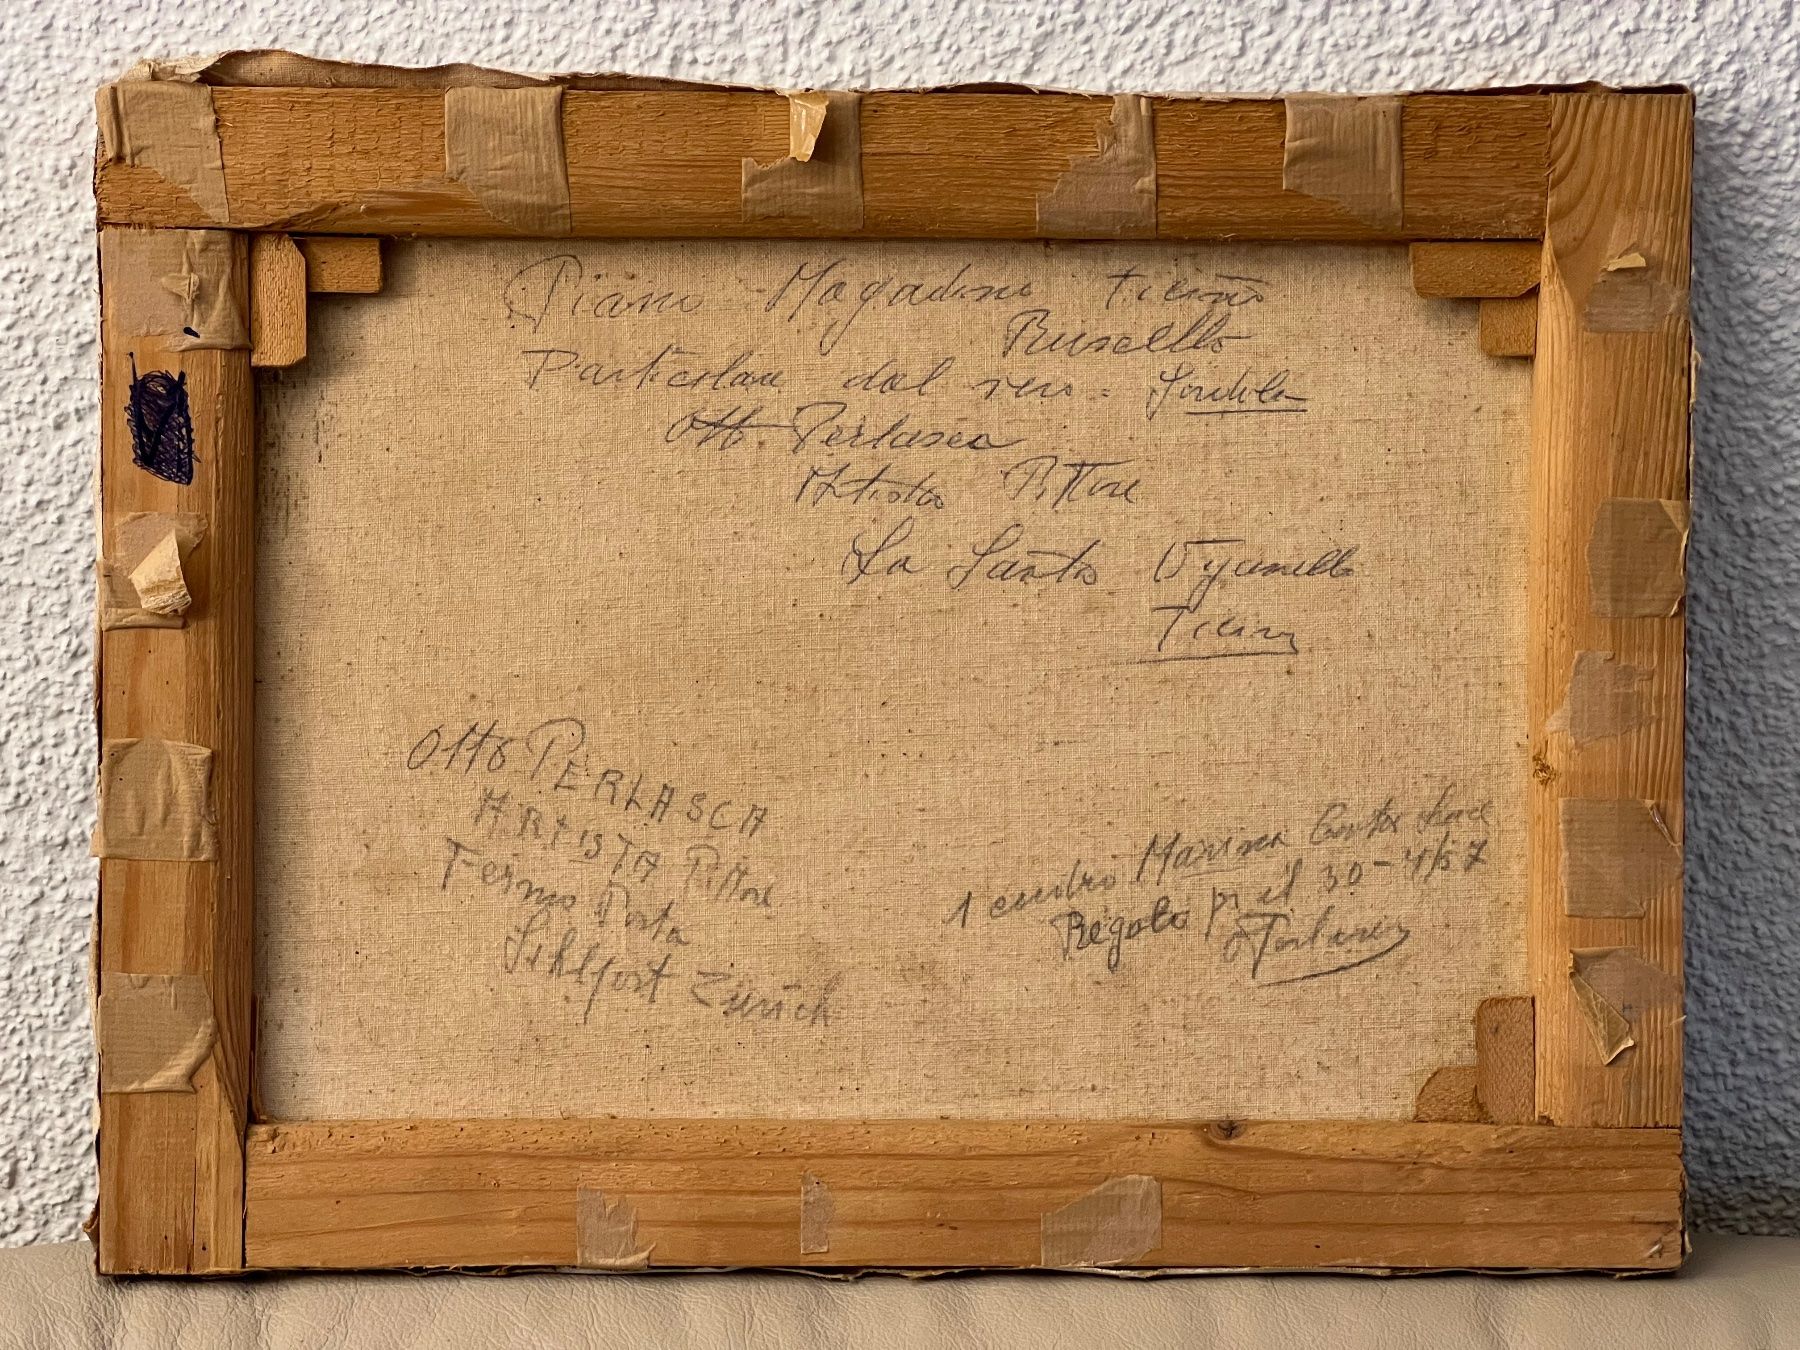 Piano Magadino Ticino
Ruscello
Particolare dal vero.
Otto Perlasca
Artista Pittore
La Santo Viganello
Ticino
Otto PERLASCA
ARTISTA Pittore
Fermo Posta
Sihlpost Zurich
1 Marina
Regalo il 30-4/57
Perlasca